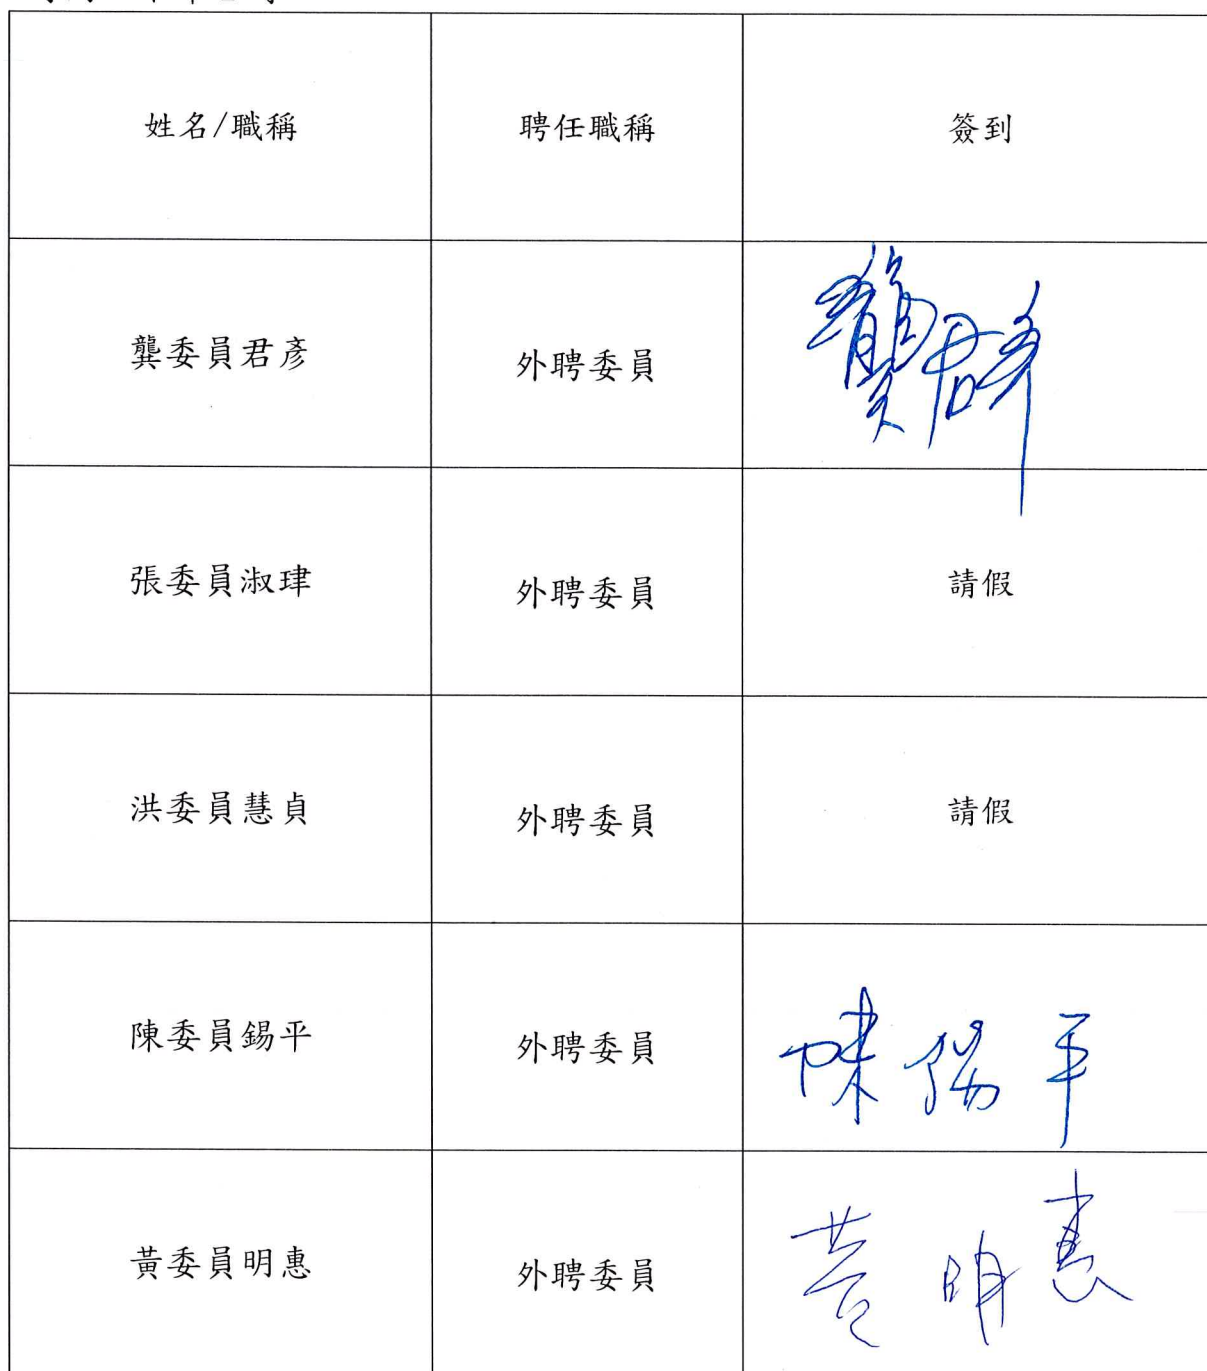 姓名/職稱 聘任職稱 簽到
龔委員君彥 外聘委員 龔君彥
張委員淑珒 外聘委員 請假
洪委員慧貞 外聘委員 請假
陳委員錫平 外聘委員 陳錫平
黃委員明惠 外聘委員 黃明惠